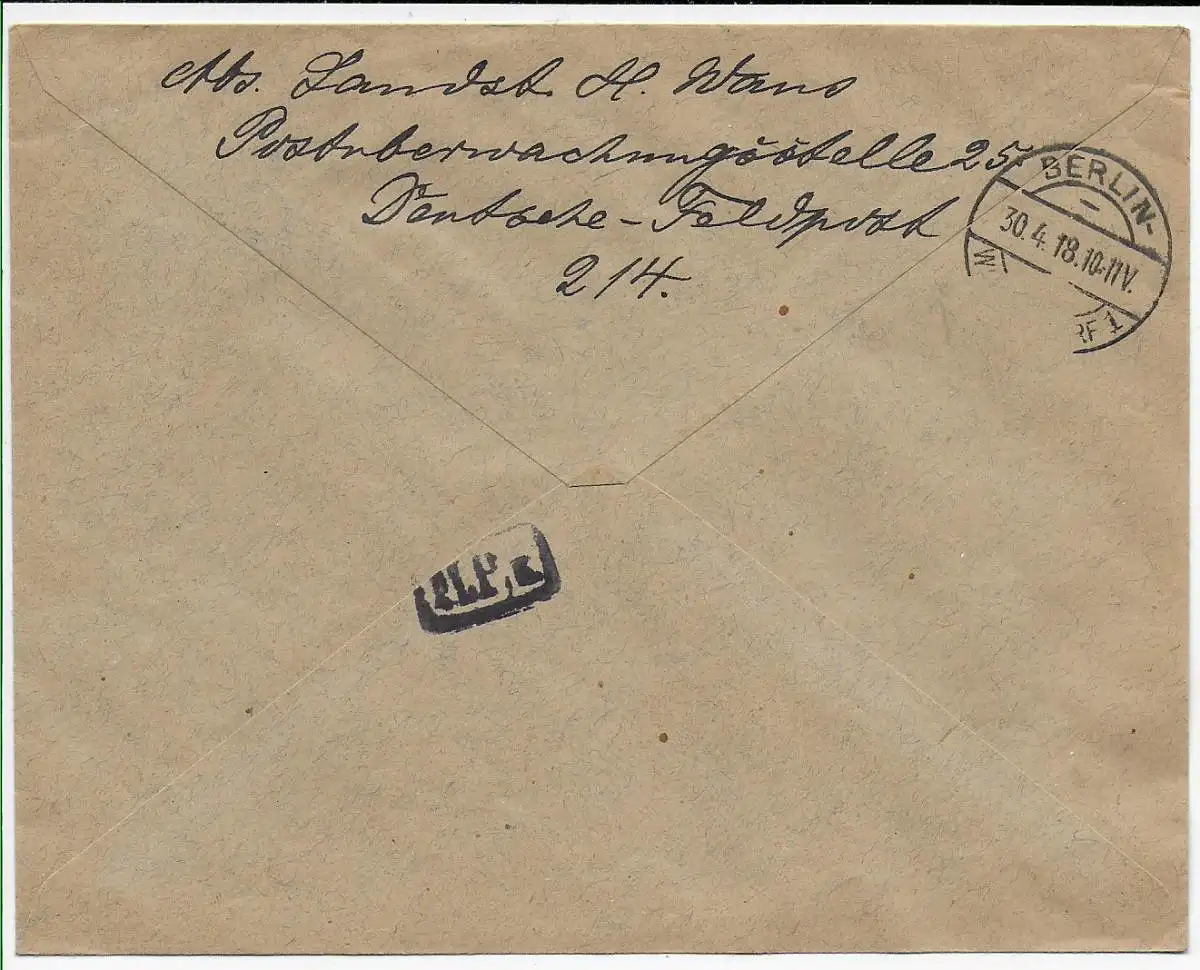 Abs. Landst. H. Wans
Postuberwachungsstelle 25
Deutsche-Feldpost
214.
BERLIN-
30.4.18.10-11V.
W M
RF 1